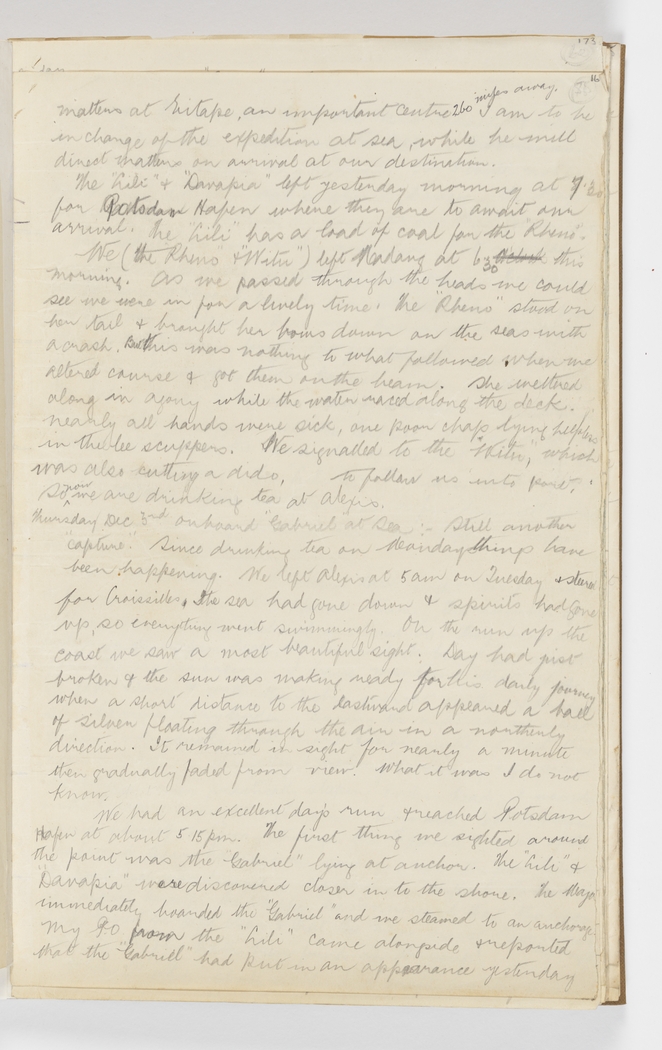 173
miles away.
matters at Eitape, an important centre 260 I am to be
in charge of the expedition at sea, while he will
direct matters on arrival at our destination.
The "Lili" & "Davapia" left yesterday morning at 7.30
for Potsdam Hafen where they are to await our
arrival. The "Lili" has a load of coal for the "Rheno".
We (the "Rheno" & "Witu") left Madang at 6 30 this
morning. As we passed through the heads we could
see we were in for a lively time. The "Rheno" stood on
her tail & brought her bows down on the seas with
a crash. But this was nothing to what followed when we
altered course & got them on the beam. She weltered
along in agony while the water raced along the deck.
nearly all hands were sick, one poor chap lying helpless
in the lee scuppers. We signalled to the "Witu", which
was also cutting a dido, to follow us into port,
so now we are drinking tea at Alexis.
Thursday Dec 3rd on board "Gabriel" at Sea :- Still another
"capture". Since drinking tea on Monday things have
been happening. We left Alexis at 5 am on Tuesday & steered
for Croissilles, The sea had gone down & spirits had gone
up, so everything went swimmingly. On the run up the
coast we saw a most beautiful sight. Day had just
broken & the sun was making ready for his daily journey
when a short distance to the Eastward appeared a ball
of silver floating through the air in a northerly
direction. It remained in sight for nearly a minute
then gradually faded from view. What it was I do not
know.
We had an excellent day's run & reached Potsdam
Hafen at about 5 15 pm. The first thing we sighted around
the point was the "Gabriel" lying at anchor. The "Lili" &
"Davapia" were discovered closer in to the shore. The Major
immediately boarded the "Gabriel" and we steamed to an anchorage
My PO from the "Lili" came alongside & reported
that the "Gabriel" had put in an appearance yesterday